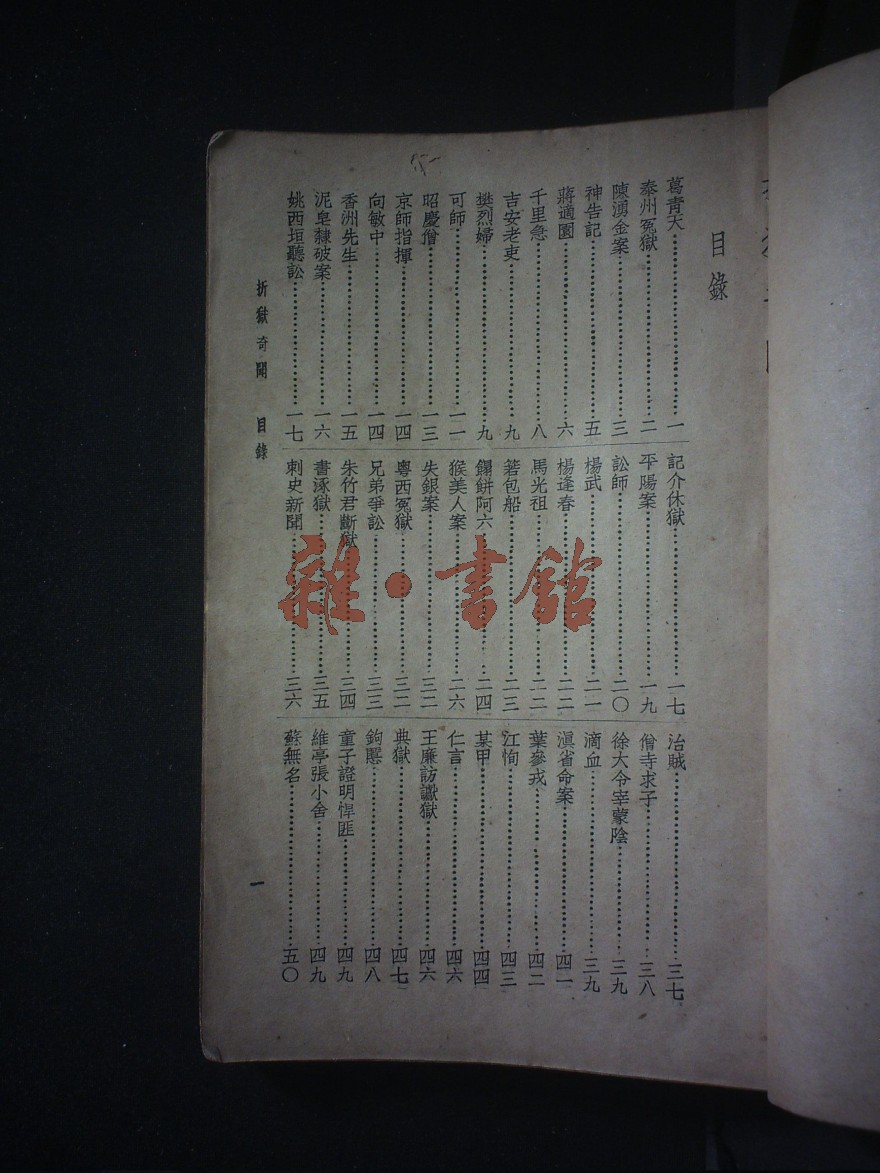 目錄
葛青天⋯⋯一
泰州冤獄⋯⋯二
陳湧金案⋯⋯三
神告記⋯⋯五
蔣適園⋯⋯六
千里急⋯⋯八
吉安老吏⋯⋯九
樊烈婦⋯⋯九
可師⋯⋯一一
昭慶僧⋯⋯一三
京師指揮⋯⋯一四
向敏中⋯⋯一四
香洲先生⋯⋯一五
泥皂隸破案⋯⋯一六
姚西垣聽訟⋯⋯一七
記介休獄⋯⋯一七
平陽案⋯⋯一九
訟師⋯⋯二〇
楊武⋯⋯二一
楊逢春⋯⋯二二
馬光祖⋯⋯二二
箬包船⋯⋯二三
餶餅阿六⋯⋯二四
猴美人案⋯⋯二六
失銀案⋯⋯三二
粵西冤獄⋯⋯三二
兄弟爭訟⋯⋯三三
朱竹君斷獄⋯⋯三四
書涿獄⋯⋯三五
刺史新聞⋯⋯三六
治賊⋯⋯三七
僧寺求子⋯⋯三八
徐大令宰蒙陰⋯⋯三九
滴血⋯⋯三九
滇省命案⋯⋯四一
葉參戎⋯⋯四二
江恂⋯⋯四三
某甲⋯⋯四四
仁言⋯⋯四六
王廉訪讞獄⋯⋯四六
典獄⋯⋯四七
鉤慝⋯⋯四八
童子證明悍匪⋯⋯四九
維亭張小舍⋯⋯四九
蘇無名⋯⋯五〇
折獄奇聞 目錄
一
雜·書館